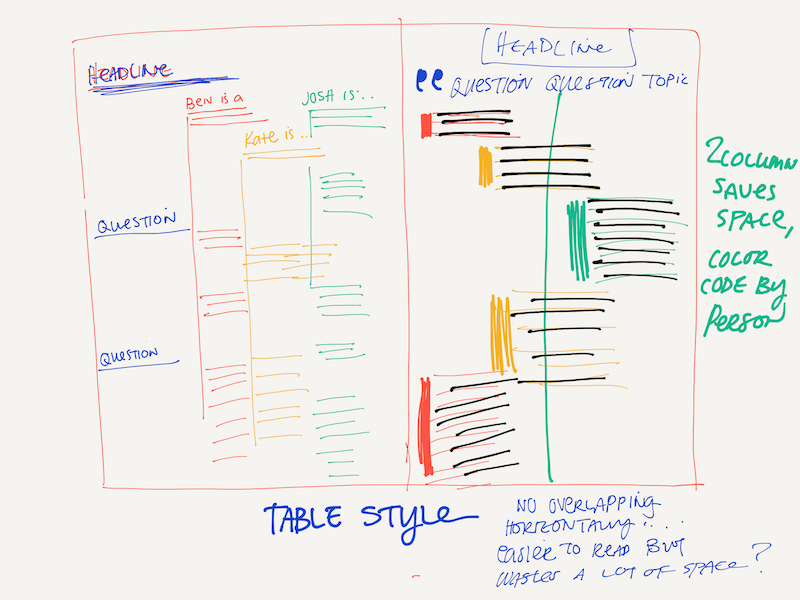 HEADLINE
BEN is a
JOSH is...
Kate is...
QUESTION
QUESTION
[HEADLINE]
“QUESTION QUESTION TOPIC
2 COLUMN
SAVES
SPACE,
COLOR
CODE BY
PERSON
TABLE STYLE
NO OVERLAPPING
HORIZONTALLY....
easier TO READ BUT
WASTES A LOT OF SPACE?